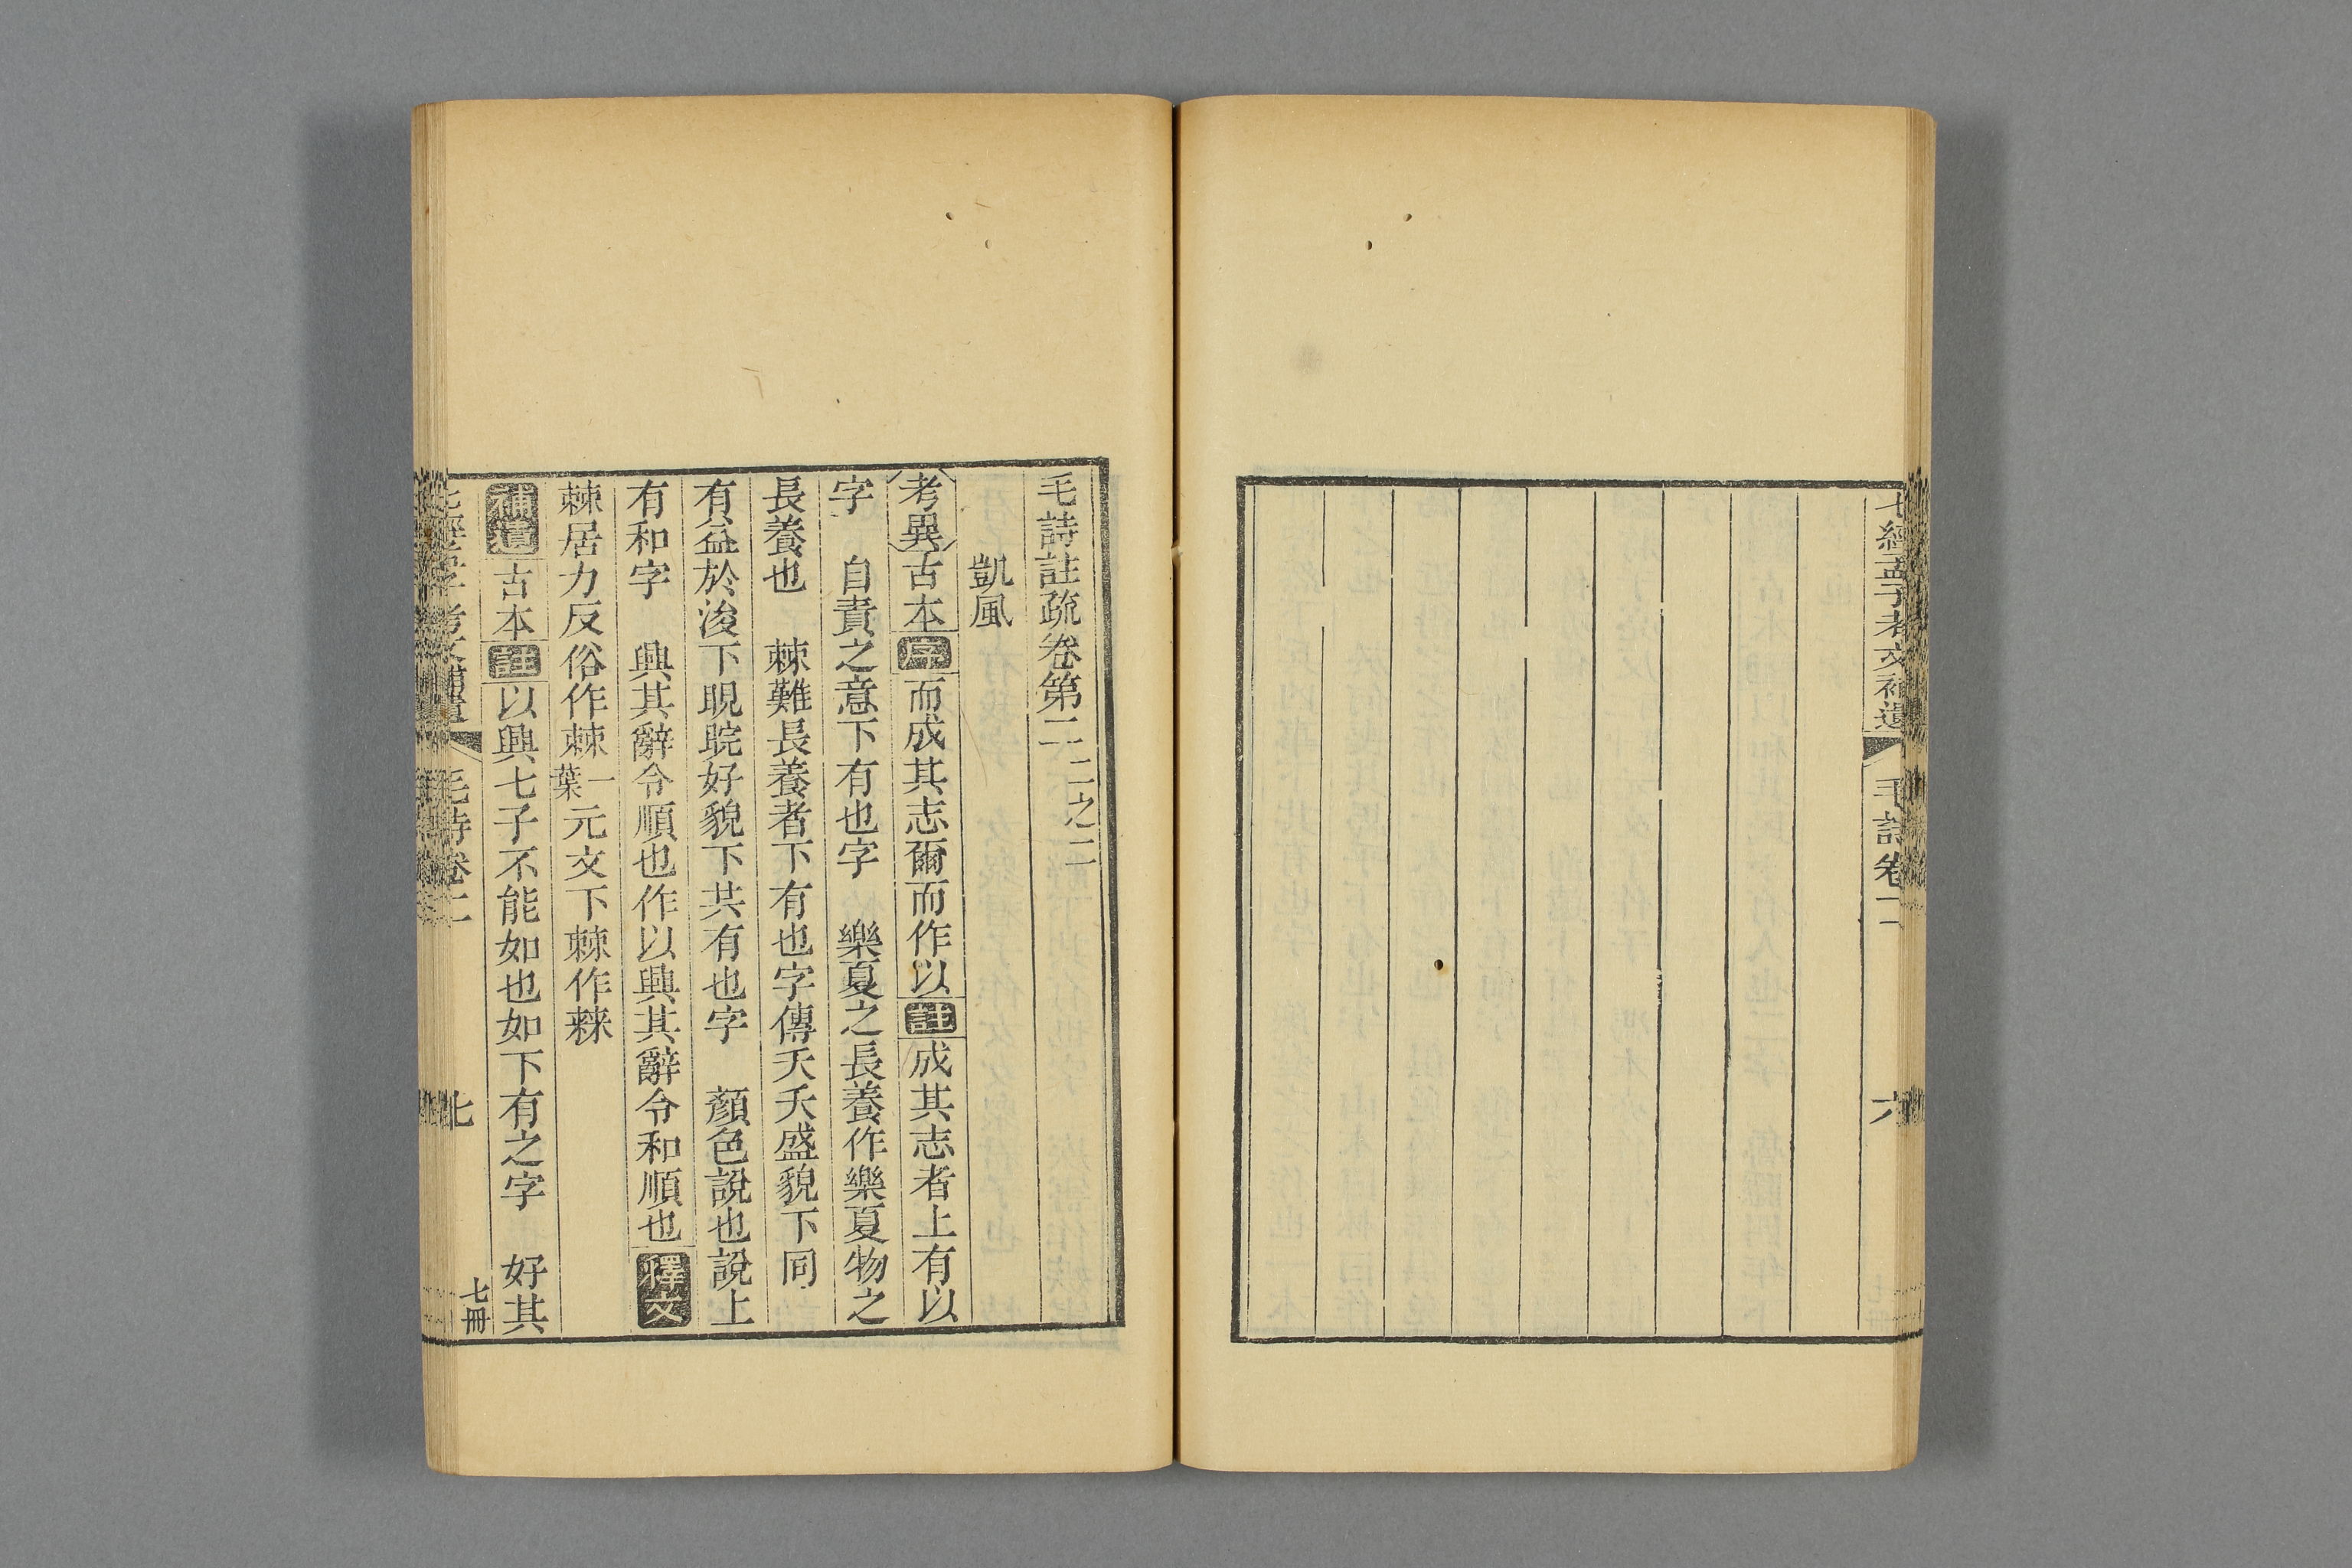 七經孟子考文補遺 毛詩卷二 六
毛詩註疏卷第二 二之二
凱風
考異 古本 序 而成其志爾而作以 註 成其志者上有以
字 自責之意下有也字 樂夏之長養作樂夏物之
長養也 棘難長養者下有也字傳夭夭盛貌下同
有益於浚下睍睆好貌下共有也字 顏色說也說上
有和字 興其辭令順也作以興其辭令和順也 釋文
棘居力反俗作棘 一葉 元文下棘作
補遺 古本 註 以興七子不能如也如下有之字 好其
七經孟子考文補遺 毛詩卷二 七 七冊